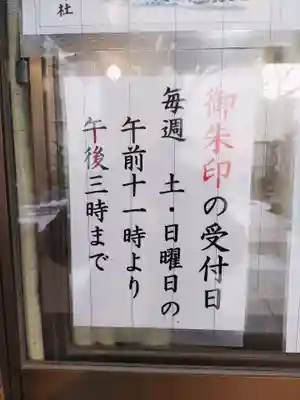 社
御朱印の受付日
毎週　土・日曜日の
午前十一時より
午後三時まで